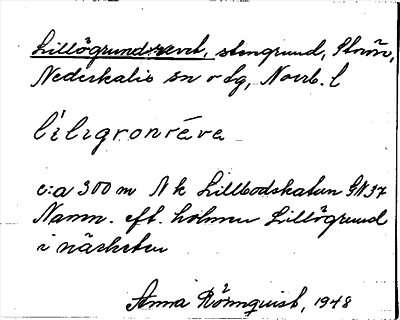 Lillögrundrevet, stengrund, Storön,
Nederkalix sn o lg, Norrb. l
lìlιgronréve
c:a 300 m N k Lillbodskatan GN37
Namn. eft. holmen Lillögrund
i närheten
Anna Rönnquist, 1948